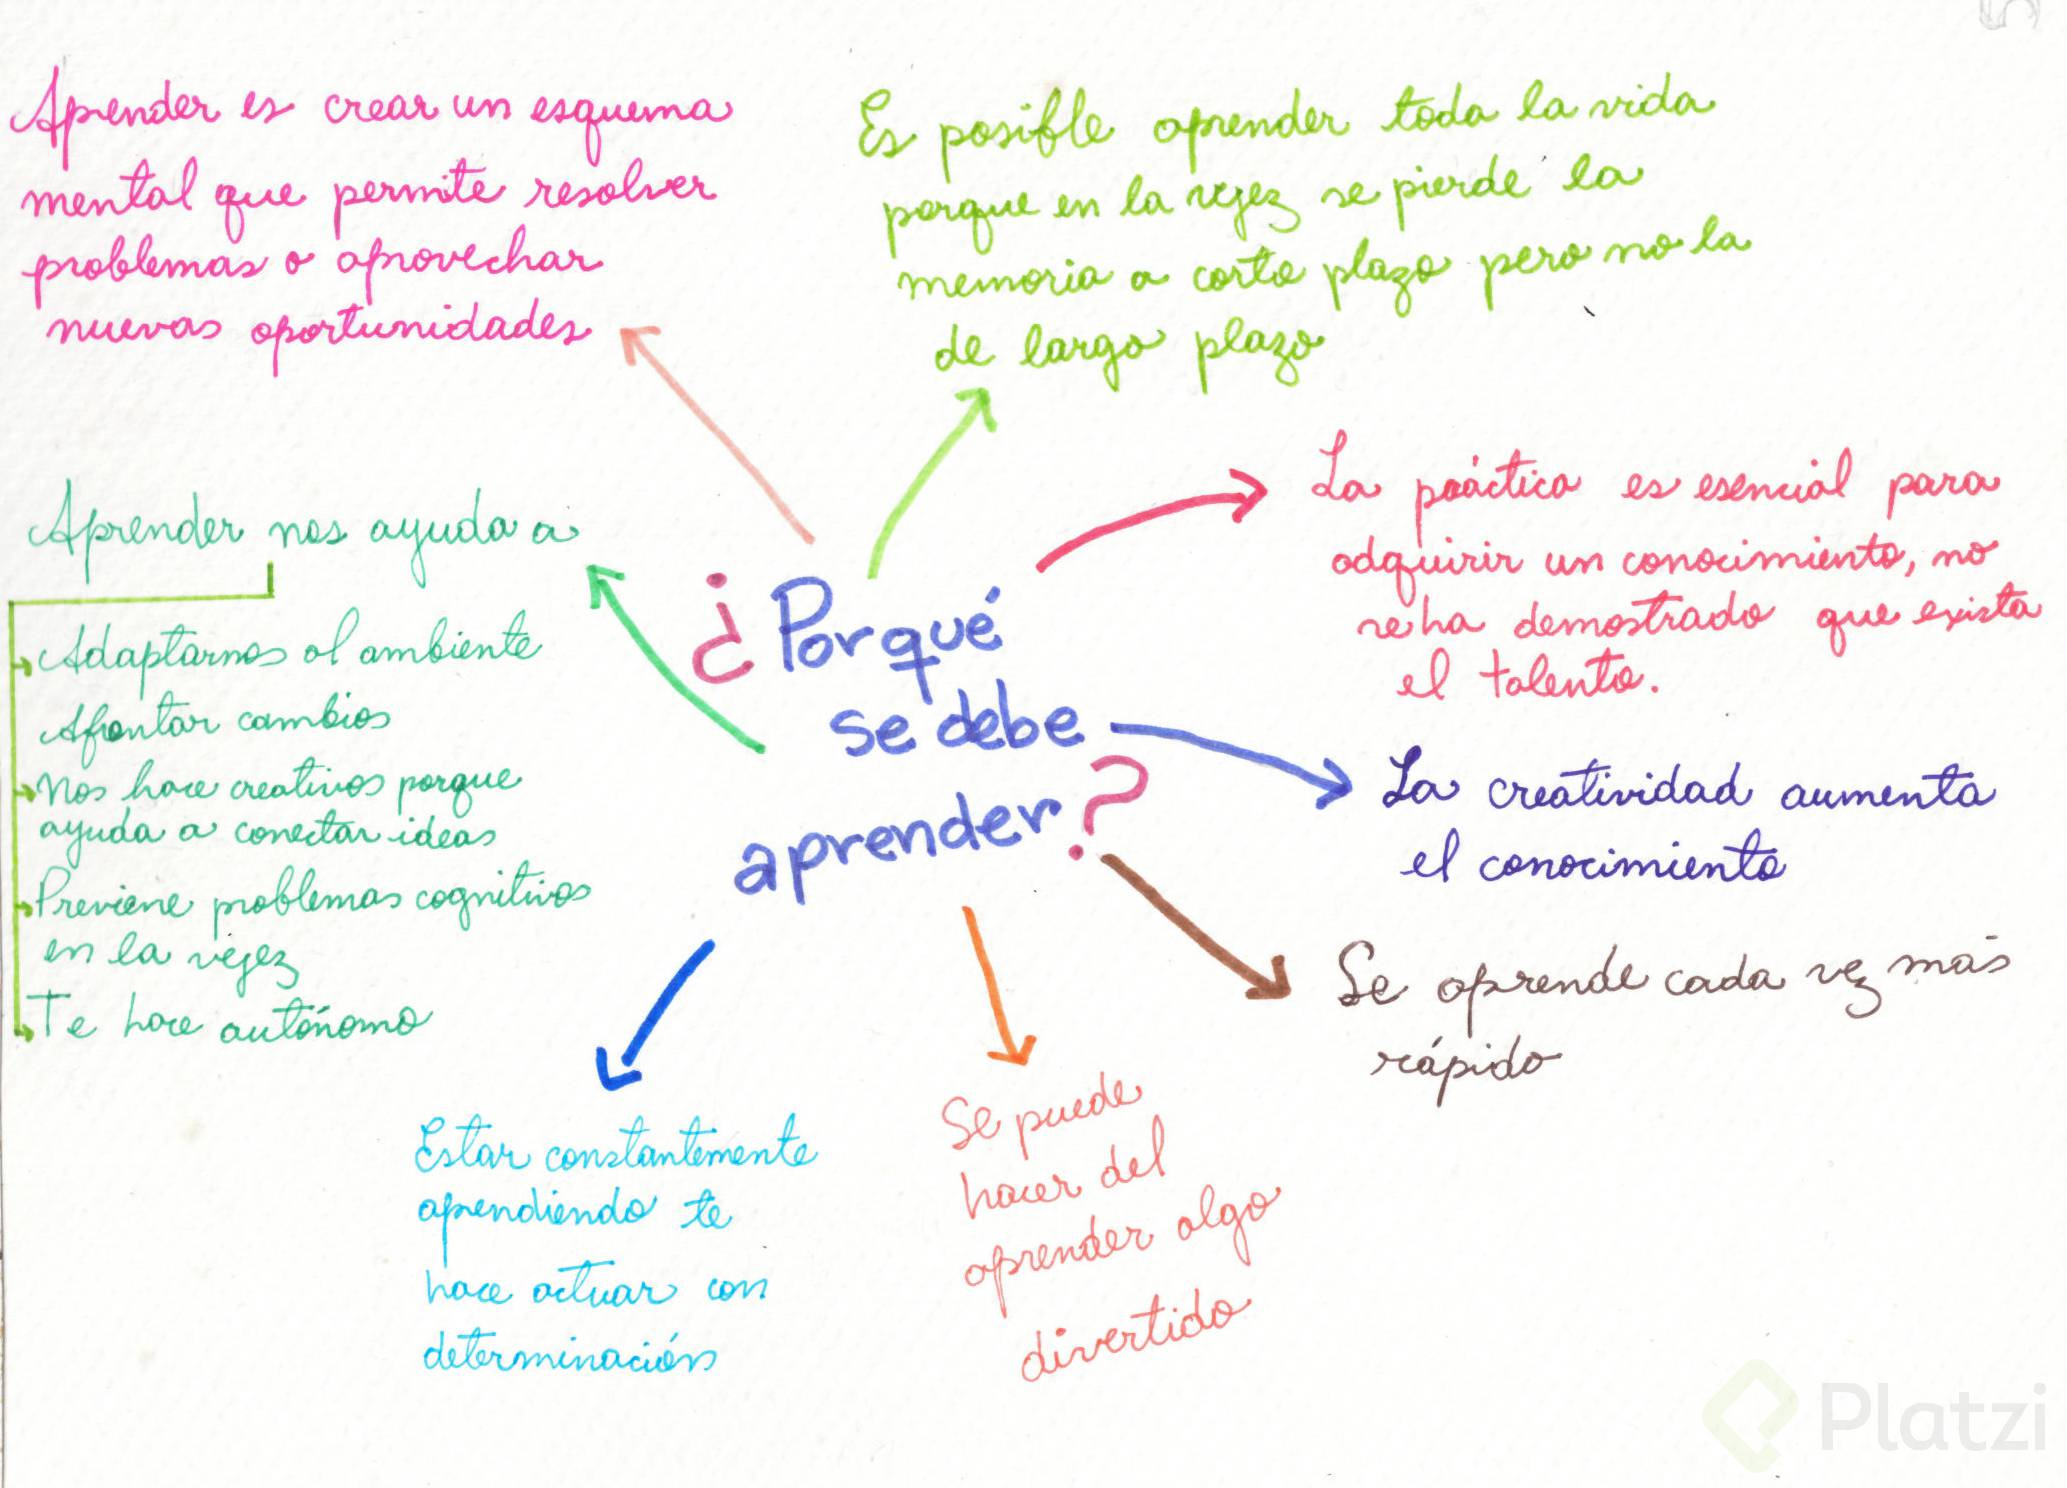 Aprender es crear un esquema
mental que permite resolver
problemas o aprovechar
nuevas oportunidades
Es posible aprender toda la vida
porque en la vejez se pierde la
memoria a corto plazo pero no la
de largo plazo
La práctica es esencial para
adquirir un conocimiento, no
se ha demostrado que exista
el talento.
Aprender nos ayuda a
Adaptarnos al ambiente
Afrontar cambios
Nos hace creativos porque
ayuda a conectar ideas
Previene problemas cognitivos
en la vejez
Te hace autónomo
¿Porqué
se debe
aprender?
La creatividad aumenta
el conocimiento
Se aprende cada vez más
rápido
Estar constantemente
aprendiendo te
hace actuar con
determinación
Se puede
hacer del
aprender algo
divertido
Platzi